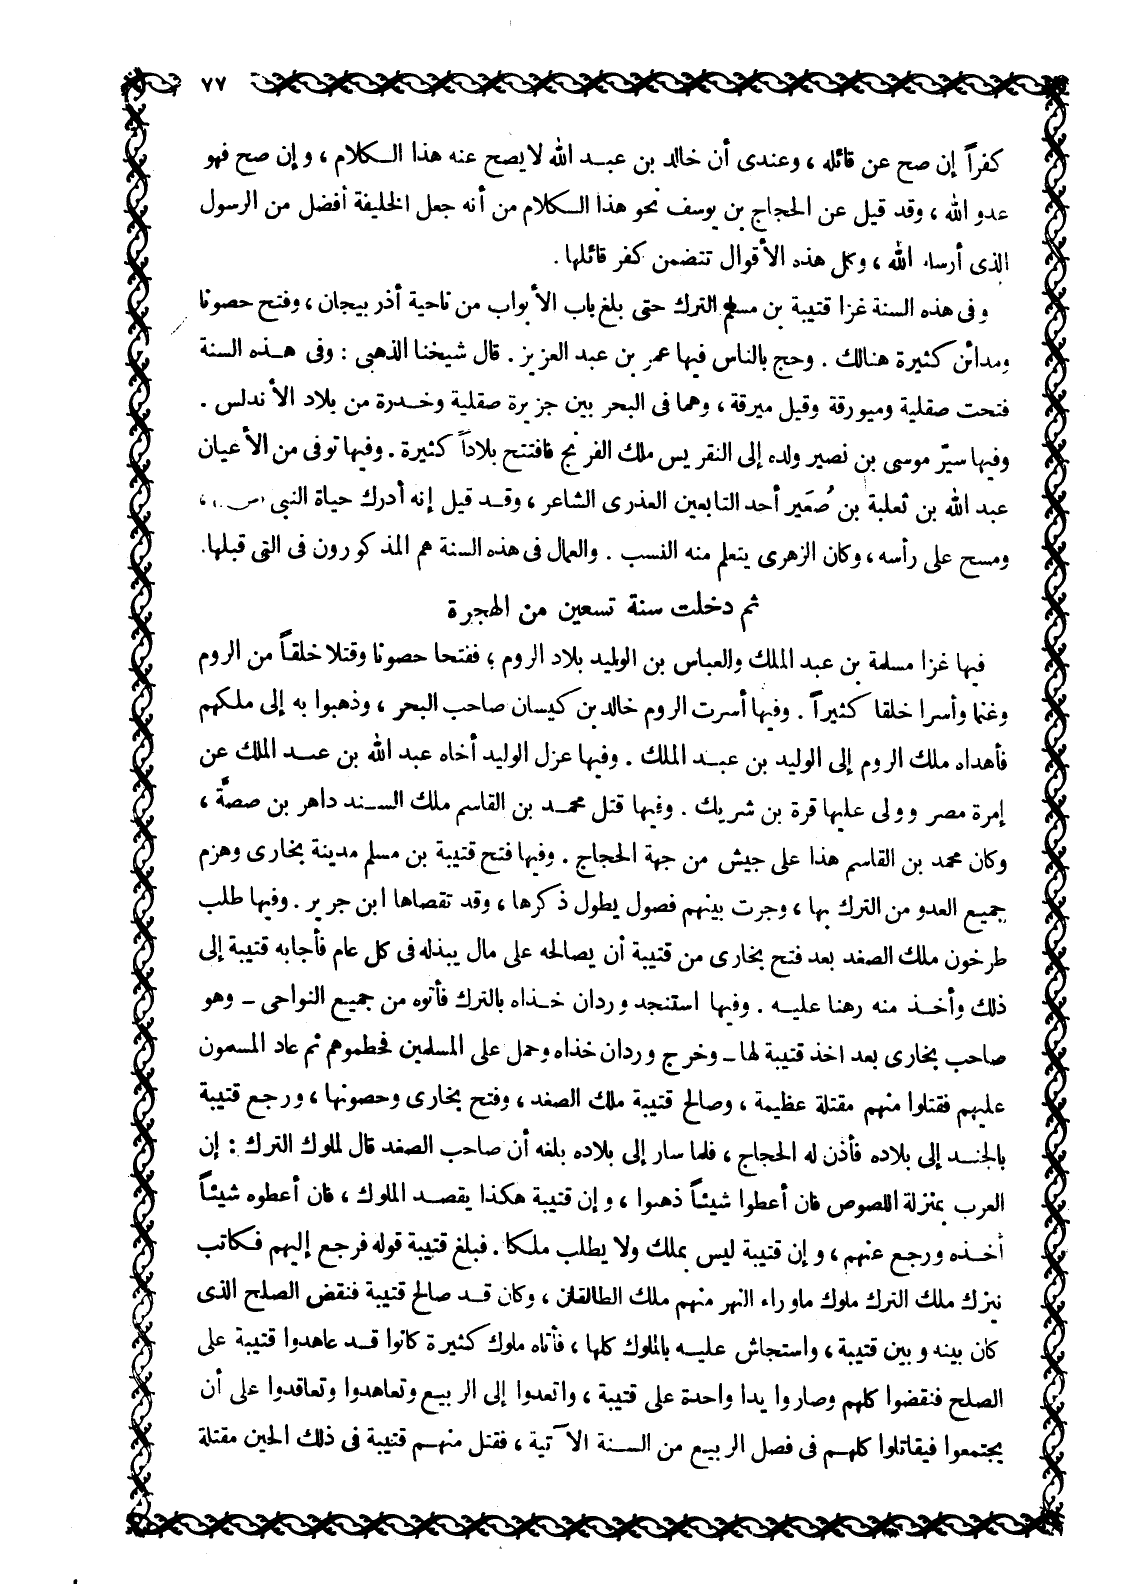 ٧٧
كفراً إن صح عن قائله ، وعندى أن خالد بن عبد الله لا يصح عنه هذا الكلام ، وإن صح فهو
عدو الله ، وقد قيل عن الحجاج بن يوسف نحو هذا الكلام من أنه جعل الخليفة أفضل من الرسول
الذى أرسله الله ، وكل هذه الأقوال تتضمن كفر قائلها .
وفى هذه السنة غزا قتيبة بن مسلم الترك حتى بلغ باب الأبواب من ناحية أذربيجان ، وفتح حصونا
ومدائن كثيرة هنالك . وحج بالناس فيها عمر بن عبد العزيز . قال شيخنا الذهبى : وفى هذه السنة
فتحت صقلية وميورقة وقيل ميرقة ، وهما فى البحر بين جزيرة صقلية وخدرة من بلاد الأندلس .
وفيها سيّر موسى بن نصير ولده إلى النقريس ملك الفرنج فافتتح بلاداً كثيرة . وفيها توفى من الأعيان
عبد الله بن ثعلبة بن صُعَير أحد التابعين العذرى الشاعر ، وقد قيل إنه أدرك حياة النبى (ص) ،
ومسح على رأسه ، وكان الزهرى يتعلم منه النسب . والعمال فى هذه السنة هم المذكورون فى التى قبلها.
ثم دخلت سنة تسعين من الهجرة
فيها غزا مسلمة بن عبد الملك والعباس بن الوليد بلاد الروم ؛ ففتحا حصونا وقتلا خلقاً من الروم
وغنما وأسرا خلقا كثيراً . وفيها أسرت الروم خالد بن كيسان صاحب البحر ، وذهبوا به إلى ملكهم
فأهداه ملك الروم إلى الوليد بن عبد الملك . وفيها عزل الوليد أخاه عبد الله بن عبد الملك عن
إمرة مصر وولى عليها قرة بن شريك . وفيها قتل محمد بن القاسم ملك السند داهر بن صصّة ،
وكان محمد بن القاسم هذا على جيش من جهة الحجاج . وفيها فتح قتيبة بن مسلم مدينة بخارى وهزم
جميع العدو من الترك بها ، وجرت بينهم فصول يطول ذكرها ، وقد تقصاها ابن جرير . وفيها طلب
طرخون ملك الصغد بعد فتح بخارى من قتيبة أن يصالحه على مال يبذله فى كل عام فأجابه قتيبة إلى
ذلك وأخذ منه رهنا عليه . وفيها استنجد وردان خذاه بالترك فأتوه من جميع النواحى - وهو
صاحب بخارى بعد اخذ قتيبة لها - وخرج وردان خذاه وحمل على المسلمين فحطموهم ثم عاد المسلمون
عليهم فقتلوا منهم مقتلة عظيمة ، وصالح قتيبة ملك الصغد ، وفتح بخارى وحصونها ، ورجع قتيبة
بالجند إلى بلاده فأذن له الحجاج ، فلما سار إلى بلاده بلغه أن صاحب الصغد قال لملوك الترك : إن
العرب بمنزلة اللصوص فان أعطوا شيئاً ذهبوا ، وإن قتيبة هكذا يقصد الملوك ، فان أعطوه شيئاً
أخذه ورجع عنهم ، وإن قتيبة ليس بملك ولا يطلب ملكا . فبلغ قتيبة قوله فرجع إليهم فكاتب
نيزك ملك الترك ملوك ماوراء النهر منهم ملك الطالقان ، وكان قد صالح قتيبة فنقض الصلح الذى
كان بينه وبين قتيبة ، واستجاش عليه بالملوك كلها ، فأتاه ملوك كثيرة كانوا قد عاهدوا قتيبة على
الصلح فنقضوا كلهم وصاروا يدا واحدة على قتيبة ، واتعدوا إلى الربيع وتعاهدوا وتعاقدوا على أن
يجتمعوا فيقاتلوا كلهم فى فصل الربيع من السنة الآتية ، فقتل منهم قتيبة فى ذلك الحين مقتلة